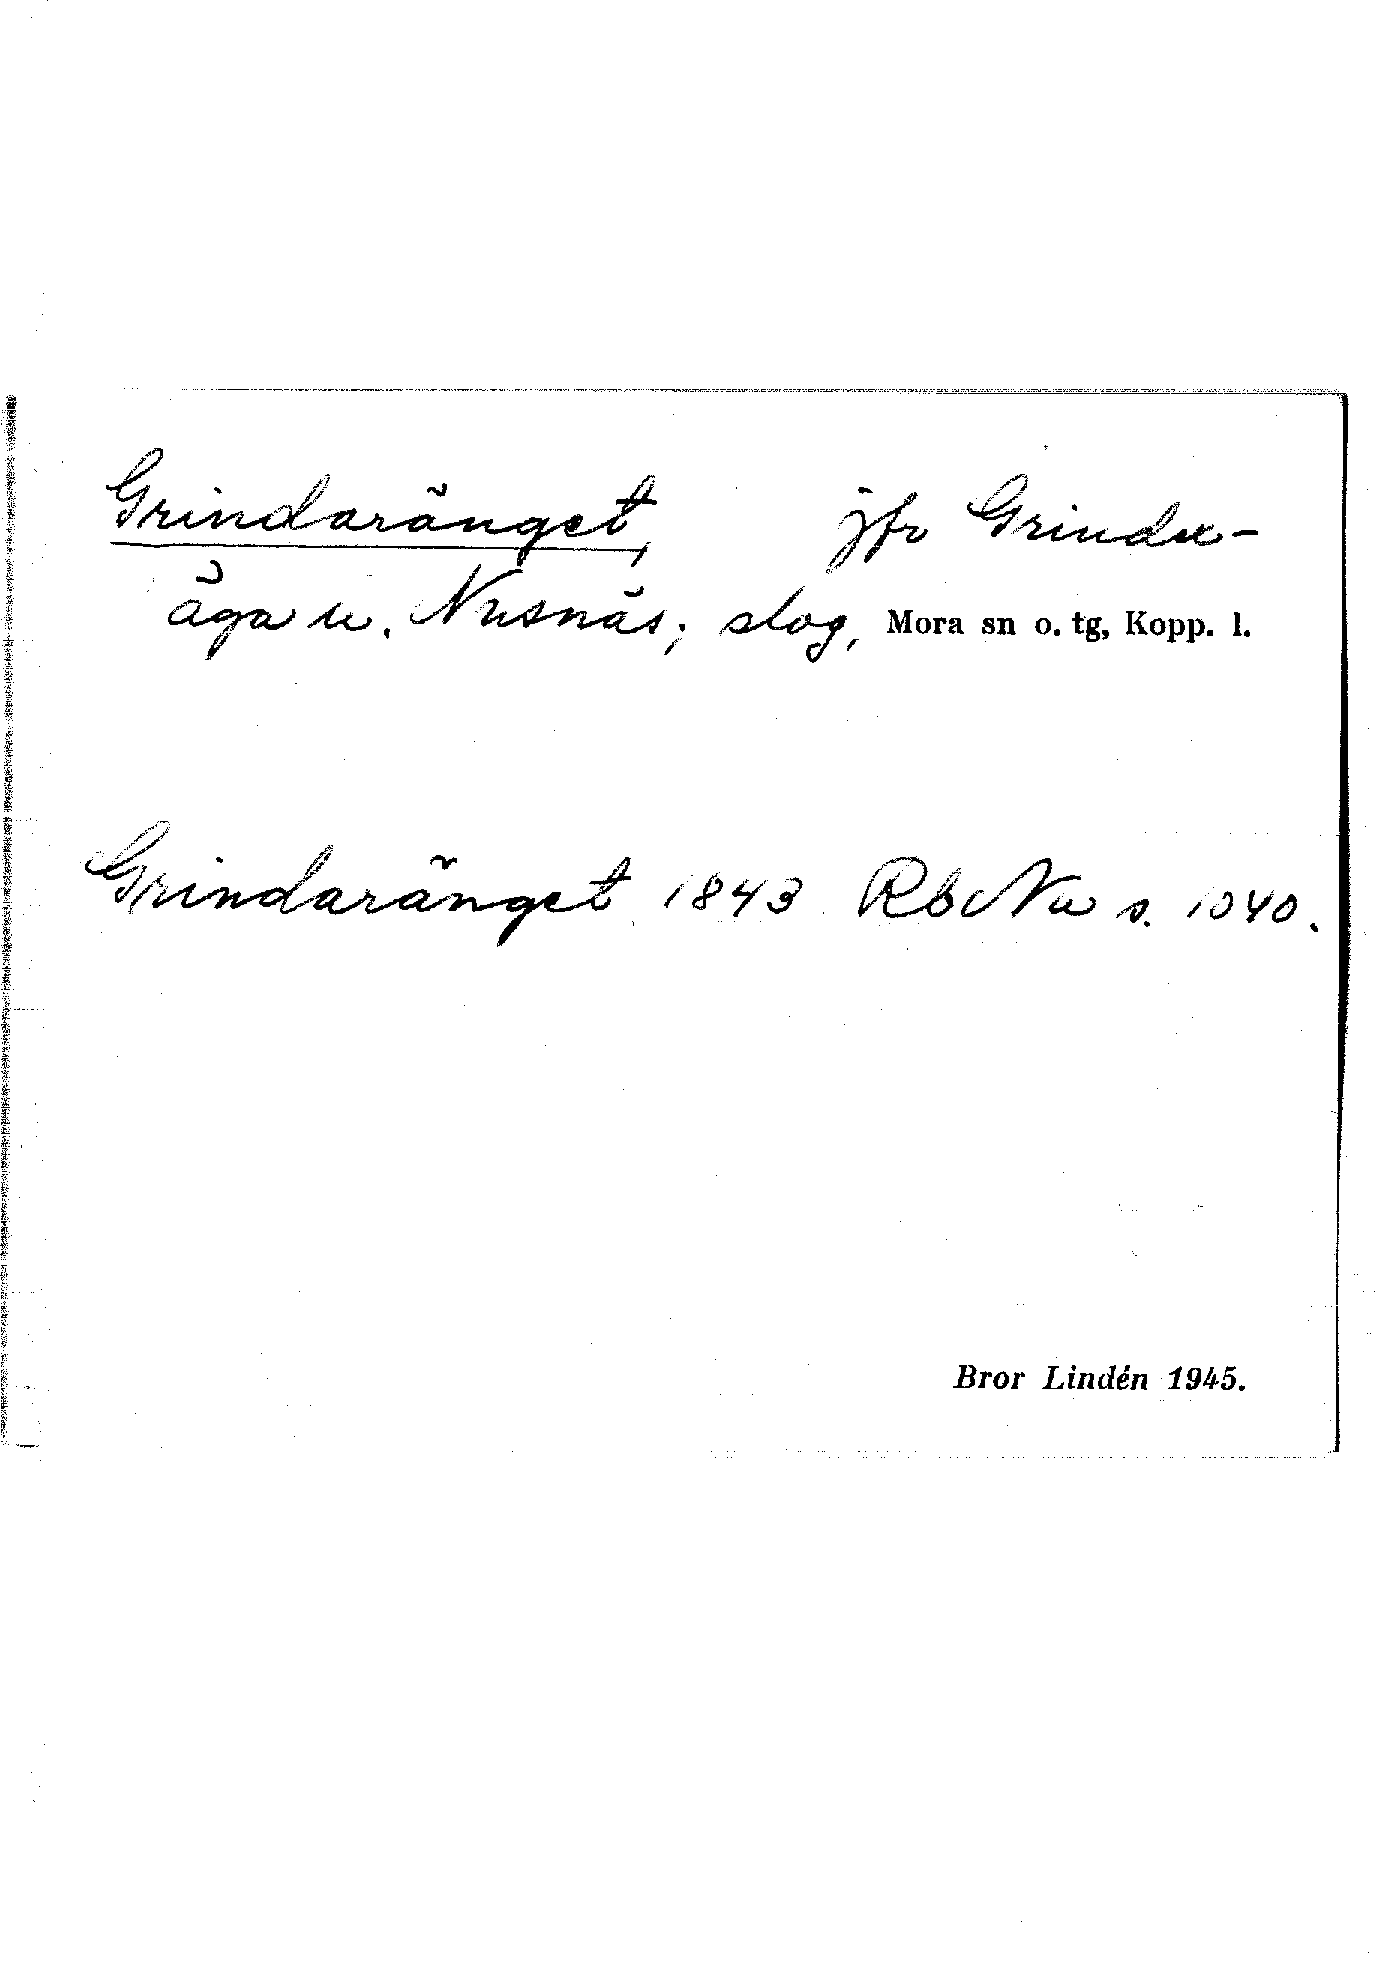 Grindaränget, jfr Grindu-
äga u. Nusnäs; slog, Mora sn o. tg, Kopp. l.
Grindaränget 1843 Rb Nu s. 1040.
Bror Lindén 1945.